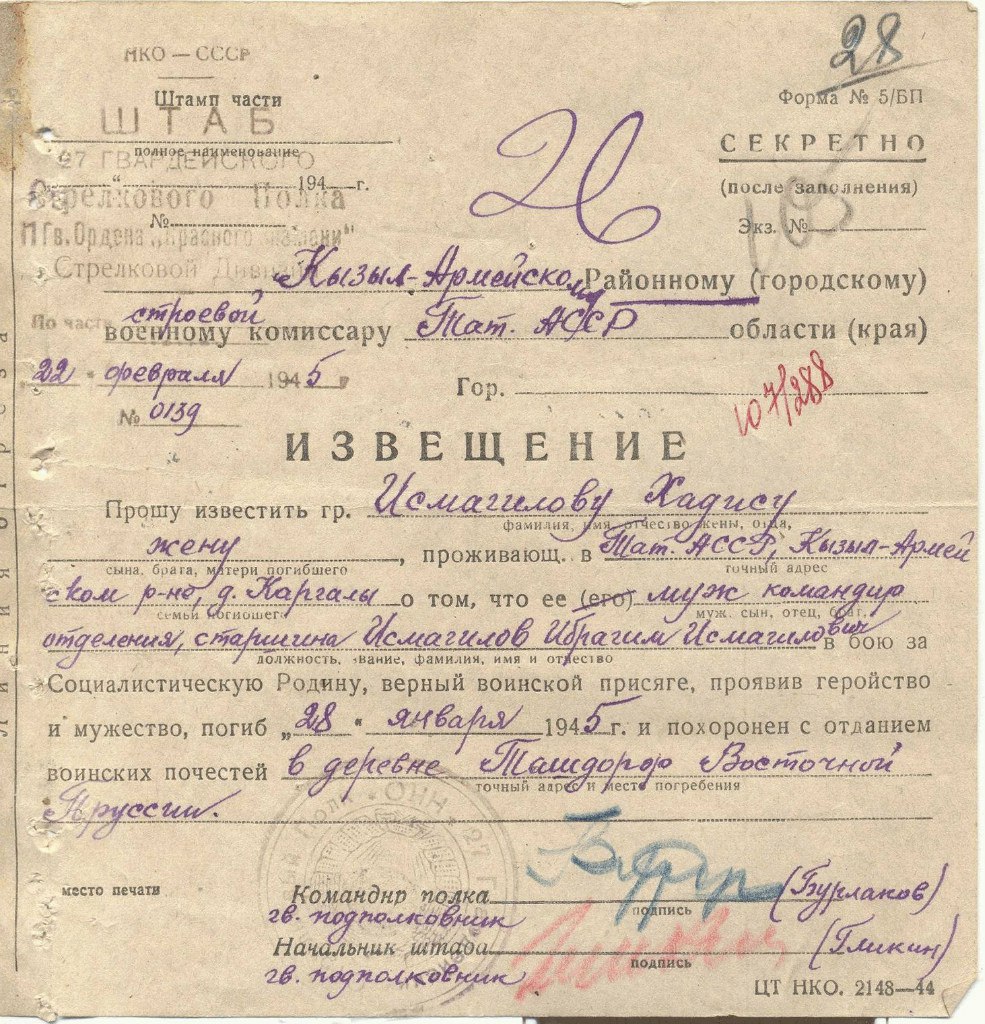 28
НКО — СССР
Штамп части
Форма № 5/БП
ШТАБ
СЕКРЕТНО
полное наименование
27 ГВАРДЕЙСКОГО
26
„ “ 194 г.
(после заполнения)
Стрелкового Полка
№
Экз. №
11 Гв. Ордена „Красного Знамени"
Стрелковой Дивизии
Кызыл-Армейскому Районному (городскому)
По части строевой
военному комиссару Тат. АССР области (края)
22 " февраля 1945 г
Гор.
107/288
№ 0139
ИЗВЕЩЕНИЕ
Прошу известить гр. Исмагилову Хадису
фамилия, имя, отчество жены, отца,
жену, проживающ. в Тат. АССР, Кызыл-Армей
сына, брата, матери погибшего точный адрес
ском р-но, д. Каргалы о том, что ее (его) муж командир
семьи погибшего муж, сын, отец, брат,
отделения, старшина Исмагилов Ибрагим Исмагилович в бою за
должность, звание, фамилия, имя и отчество
Социалистическую Родину, верный воинской присяге, проявив геройство
и мужество, погиб „28 " января 1945 г. и похоронен с отданием
воинских почестей в деревне Ташдорф Восточной
точный адрес и место погребения
Пруссии.
место печати
Командир полка (Бурлаков)
гв. подполковник
подпись
Начальник штаба (Гликин)
гв. подполковник
подпись
ЦТ НКО. 2148—44